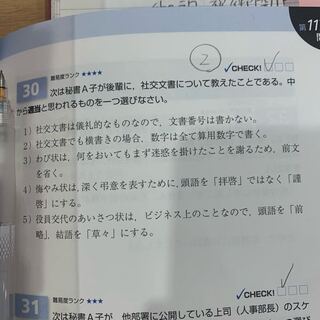 第11
②
難易度ランク ★★★
✓CHECK!
30 次は秘書A子が後輩に，社交文書について教えたことである。中
から適当と思われるものを一つ選びなさい。
1）社交文書は儀礼的なものなので，文書番号は書かない。
2）社交文書でも横書きの場合，数字は全て算用数字で書く。
3）わび状は，何をおいてもまず迷惑を掛けたことを謝るため，前文
を省く。
4）悔やみ状は，深く弔意を表すために，頭語を「拝啓」ではなく「謹
啓」にする。
5）役員交代のあいさつ状は，ビジネス上のことなので，頭語を「前
略」，結語を「草々」にする。
難易度ランク ★★★
✓CHECK!
31 次は秘書A子が，他部署に公開している上司（人事部長）のスケ